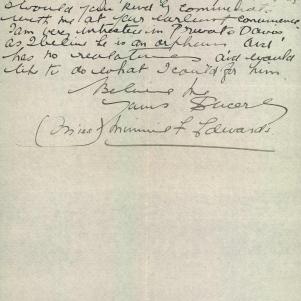 should you kindly communicate
with me at your earliest convenience
I am very interested in Private Davis
as I believe he is an orphan and
has no relations and would
like to do what I could for him
Believe me
Yours Sincerely
(Miss) Minnie F Edwards